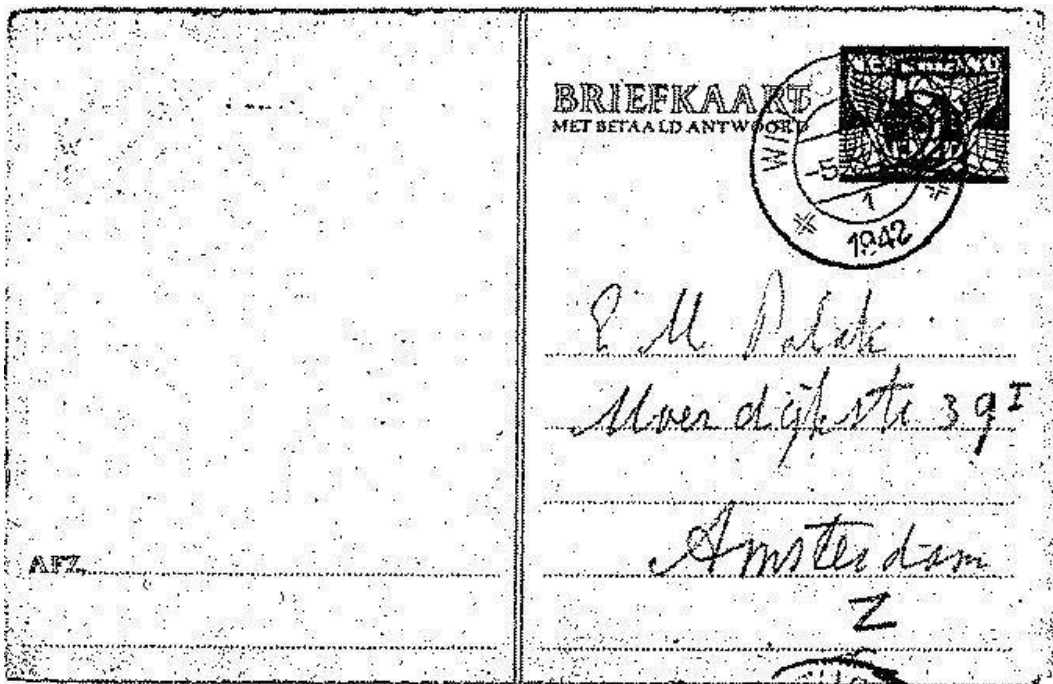 BRIEFKAART
MET BETAALD ANTWOORD
-5
1
1942
E M Polak
Moerdijkstr 39 I
Amsterdam
Z
AFZ.